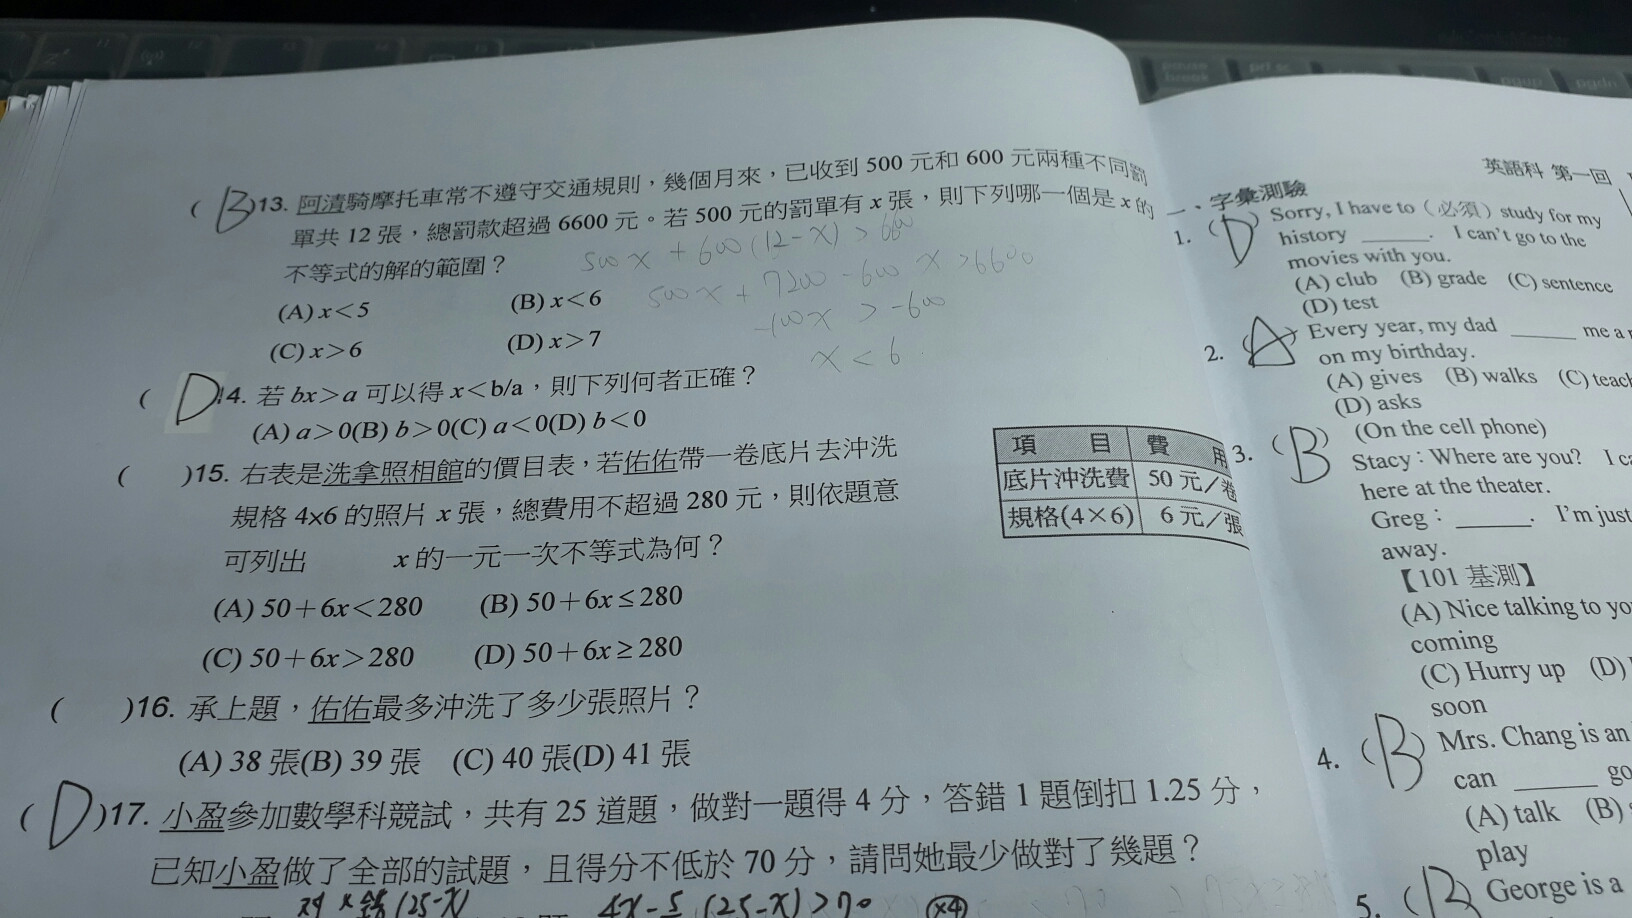 ( B )13. 阿清騎摩托車常不遵守交通規則，幾個月來，已收到 500 元和 600 元兩種不同罰
單共 12 張，總罰款超過 6600 元。若 500 元的罰單有 x 張，則下列哪一個是 x 的
不等式的解的範圍？
500x + 600(12-x) > 6600
(A) x<5 (B) x<6
500x + 7200 - 600x > 6600
-100x > -600
(C) x>6 (D) x>7
x < 6
( D 14. 若 bx>a 可以得 x<b/a，則下列何者正確？
(A) a>0(B) b>0(C) a<0(D) b<0
( )15. 右表是洗拿照相館的價目表，若佑佑帶一卷底片去沖洗
規格 4×6 的照片 x 張，總費用不超過 280 元，則依題意
可列出 x 的一元一次不等式為何？
(A) 50+6x<280 (B) 50+6x≤280
(C) 50+6x>280 (D) 50+6x≥280
項 目 費 用
底片沖洗費 50 元／卷
規格(4×6) 6 元／張
( )16. 承上題，佑佑最多沖洗了多少張照片？
(A) 38 張(B) 39 張 (C) 40 張(D) 41 張
( D )17. 小盈參加數學科競試，共有 25 道題，做對一題得 4 分，答錯 1 題倒扣 1.25 分，
已知小盈做了全部的試題，且得分不低於 70 分，請問她最少做對了幾題？
對 x 錯 (25-x) 4x-5 (25-x)>70 (×4)
英語科 第一回
一、字彙測驗
1. ( D ) Sorry, I have to（必須）study for my
history ______. I can't go to the
movies with you.
(A) club (B) grade (C) sentence
(D) test
2. ( A ) Every year, my dad ______ me a
on my birthday.
(A) gives (B) walks (C) teach
(D) asks
3. ( B ) (On the cell phone)
Stacy：Where are you? I
here at the theater.
Greg：______. I'm just
away.
【101 基測】
(A) Nice talking to
coming
(C) Hurry up (D)
soon
4. ( B ) Mrs. Chang is an
can ______ go
(A) talk (B)
play
5. ( B George is a